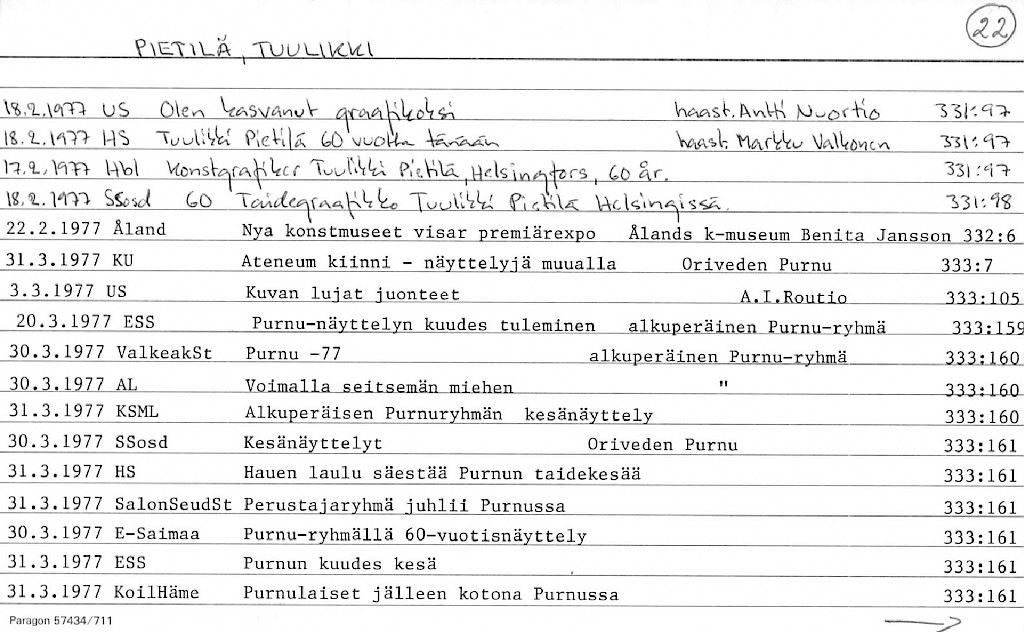 22
PIETILÄ, TUULIKKI
18.2.1977 US Olen kasvanut graafikoksi haast. Antti Nuortio 331:97
18.2.1977 HS Tuulikki Pietilä 60 vuotta tänään haast. Markku Valkonen 331:97
17.2.1977 Hbl Konstgrafiker Tuulikki Pietilä, Helsingfors, 60 år. 331:97
18.2.1977 SSosd 60 Taidegraafikko Tuulikki Pietilä Helsingissä. 331:98
22.2.1977 Åland Nya konstmuseet visar premiärexpo Ålands k-museum Benita Jansson 332:6
31.3.1977 KU Ateneum kiinni - näyttelyjä muualla Oriveden Purnu 333:7
3.3.1977 US Kuvan lujat juonteet A.I.Routio 333:105
20.3.1977 ESS Purnu-näyttelyn kuudes tuleminen alkuperäinen Purnu-ryhmä 333:159
30.3.1977 ValkeakSt Purnu -77 alkuperäinen Purnu-ryhmä 333:160
30.3.1977 AL Voimalla seitsemän miehen " 333:160
31.3.1977 KSML Alkuperäisen Purnuryhmän kesänäyttely 333:160
30.3.1977 SSosd Kesänäyttelyt Oriveden Purnu 333:161
31.3.1977 HS Hauen laulu säestää Purnun taidekesää 333:161
31.3.1977 SalonSeudSt Perustajaryhmä juhlii Purnussa 333:161
30.3.1977 E-Saimaa Purnu-ryhmällä 60-vuotisnäyttely 333:161
31.3.1977 ESS Purnun kuudes kesä 333:161
31.3.1977 KoilHäme Purnulaiset jälleen kotona Purnussa 333:161
Paragon 57434/711